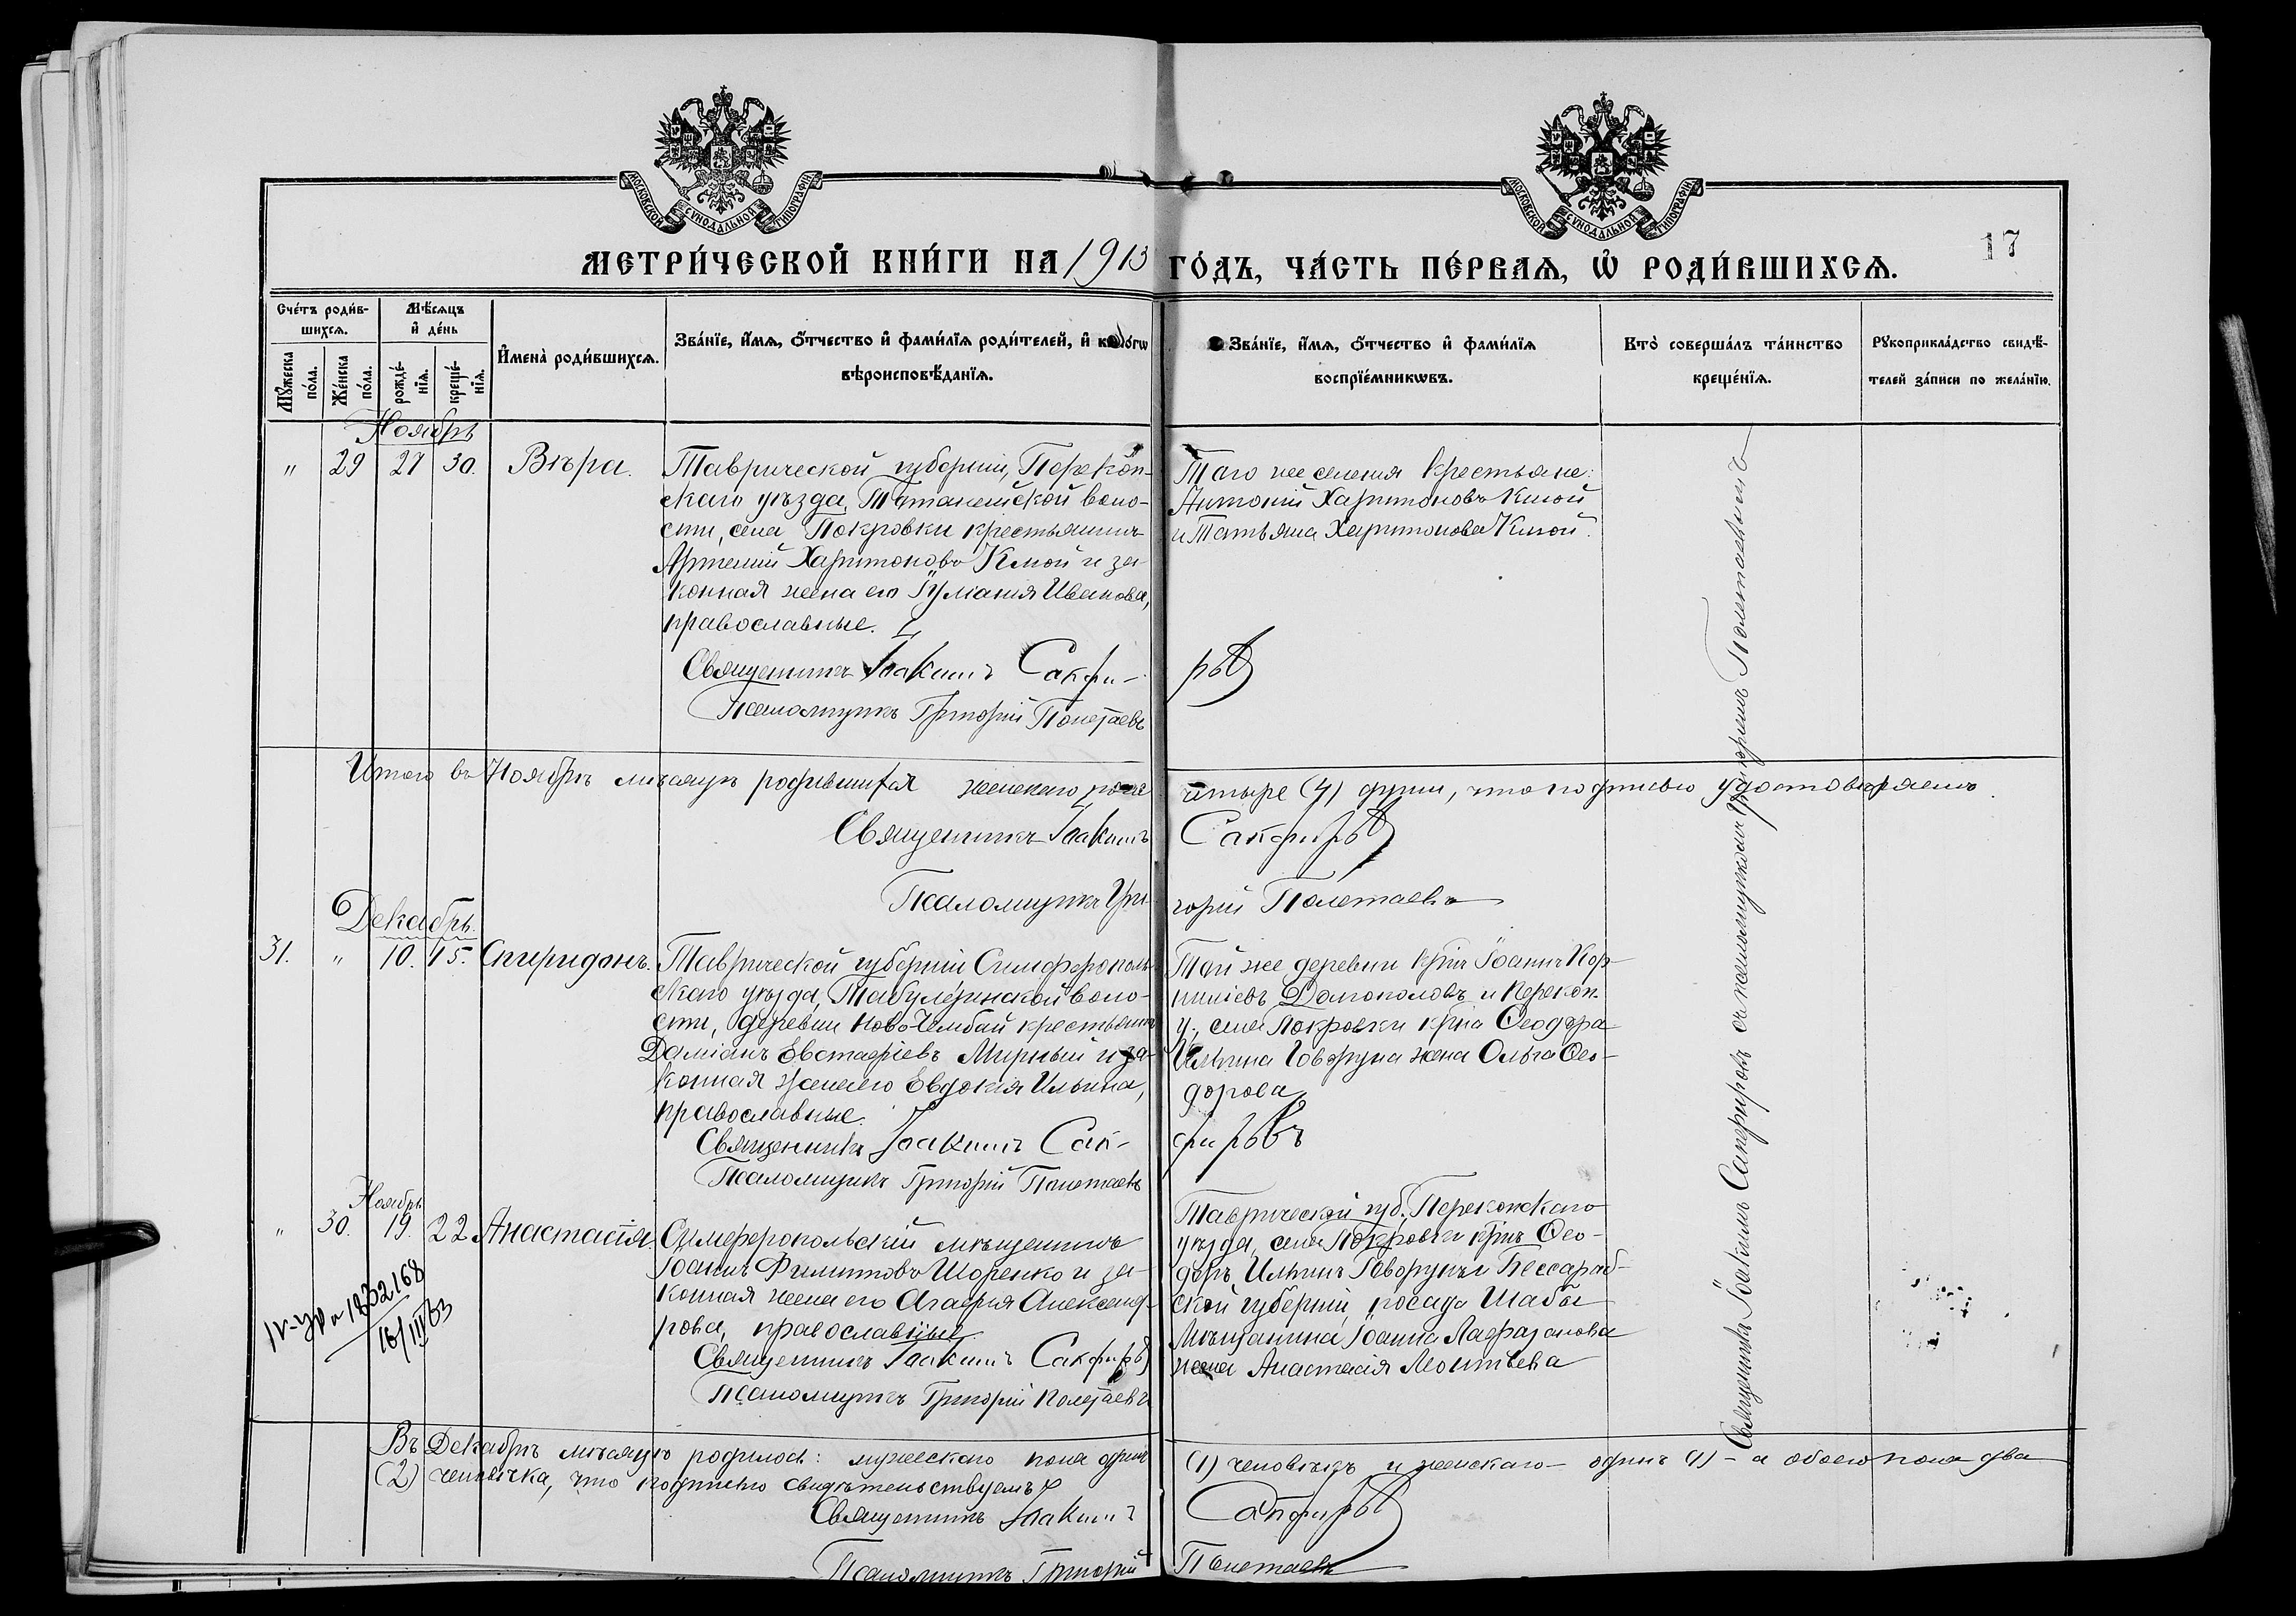 МОСКОВСКОЙ СУНОДАЛЬНОЙ ТИПОГРАФІИ
МОСКОВСКОЙ СУНОДАЛЬНОЙ ТИПОГРАФІИ
МЕТРИ́ЧЕСКОЙ КНИ́ГИ НА 1913 ГО́ДЪ, ЧА́СТЬ ПЕ́РВАѦ, Ѡ҆ РОДИ́ВШИХСѦ.
17
Сче́тъ роди́в-
шихсѧ.
Мѣ́сѧцъ
и҆ де́нь
Мꙋ́жеска
по́ла.
Же́нска
по́ла.
рожде́-
нїѧ.
креще́-
нїѧ.
И҆мена̀ роди́вшихсѧ.
Зва́нїе, и҆́мѧ, ѻ҆́тчество и҆ фами́лїѧ роди́телей, и҆
вѣроисповѣ́данїѧ.
Зва́нїе, и҆́мѧ, ѻ҆́тчество и҆ фами́лїѧ
воспрїе́мникѡвъ.
Кто̀ соверша́лъ та́инство
креще́нїѧ.
Рꙋкоприкла́дство свидѣ́-
телей за́писи по жела́нїю.
Ноябрь
" 29 27 30. Вѣра.
Таврической губерніи, Перекоп-
скаго уѣзда, волo-
сти, села Покровки крестьянинъ
Артемій Харитоновъ Климой и за-
конная жена его Іуліанія Иванова,
православные.
Священникъ Іоакимъ Сапфи-
ровъ
Псаломщикъ Григорій Полетаевъ
Того же селенія крестьяне:
Антоній Харитоновъ Климой
и Татьяна Харитонова Климой.
Итого въ Ноябрѣ мѣсяцѣ родившихся женскаго пола четыре (4) души, что подписью удостовѣряемъ.
Священникъ Іоакимъ Сапфировъ
Псаломщикъ Григорій Полетаевъ
Декабрь.
31. " 10. 15. Спиридонъ.
Таврической губерніи Симферополь-
скаго уѣзда, Табулдинской воло-
сти, деревни Ново-Челебай крестьянинъ
Даміанъ Евстафіевъ Мирный и за-
конная жена его Евдокія Ильина,
православные.
Священникъ Іоакимъ Сап-
фировъ
Псаломщикъ Григорій Полетаевъ
Той же деревни кр-нъ Іоаннъ Кор-
ниліевъ Долгополовъ и Перекоп.
у., села Покровки кр-на Ѳеодора
Ильина Говоруна жена Ольга Ѳео-
дорова
Ноябрь
" 30. 19. 22 Анастасія.
Симферопольскій мѣщанинъ
Іоаннъ Филипповъ Шоренко и за-
конная жена его Агафія Александ-
рова, православные.
Священникъ Іоакимъ Сапфировъ
Псаломщикъ Григорій Полетаевъ
Таврической губ., Перекопскаго
уѣзда, села Покровки кр-нъ Ѳео-
доръ Ильинъ Говорунъ и Бессараб-
ской губерніи, посада Шабы
мѣщанина Іоанна
жена Анастасія Леонтьева
16/III 63
Священникъ Іоакимъ Сапфировъ съ псаломщикомъ Григоріемъ Полетаевымъ
Въ Декабрѣ мѣсяцѣ родилось: мужескаго пола одинъ (1) человѣкъ и женскаго одинъ (1) – а обоего пола два
(2) человѣка, что подписью свидѣтельствуемъ
Священникъ Іоакимъ Сапфировъ
Псаломщикъ Григорій Полетаевъ